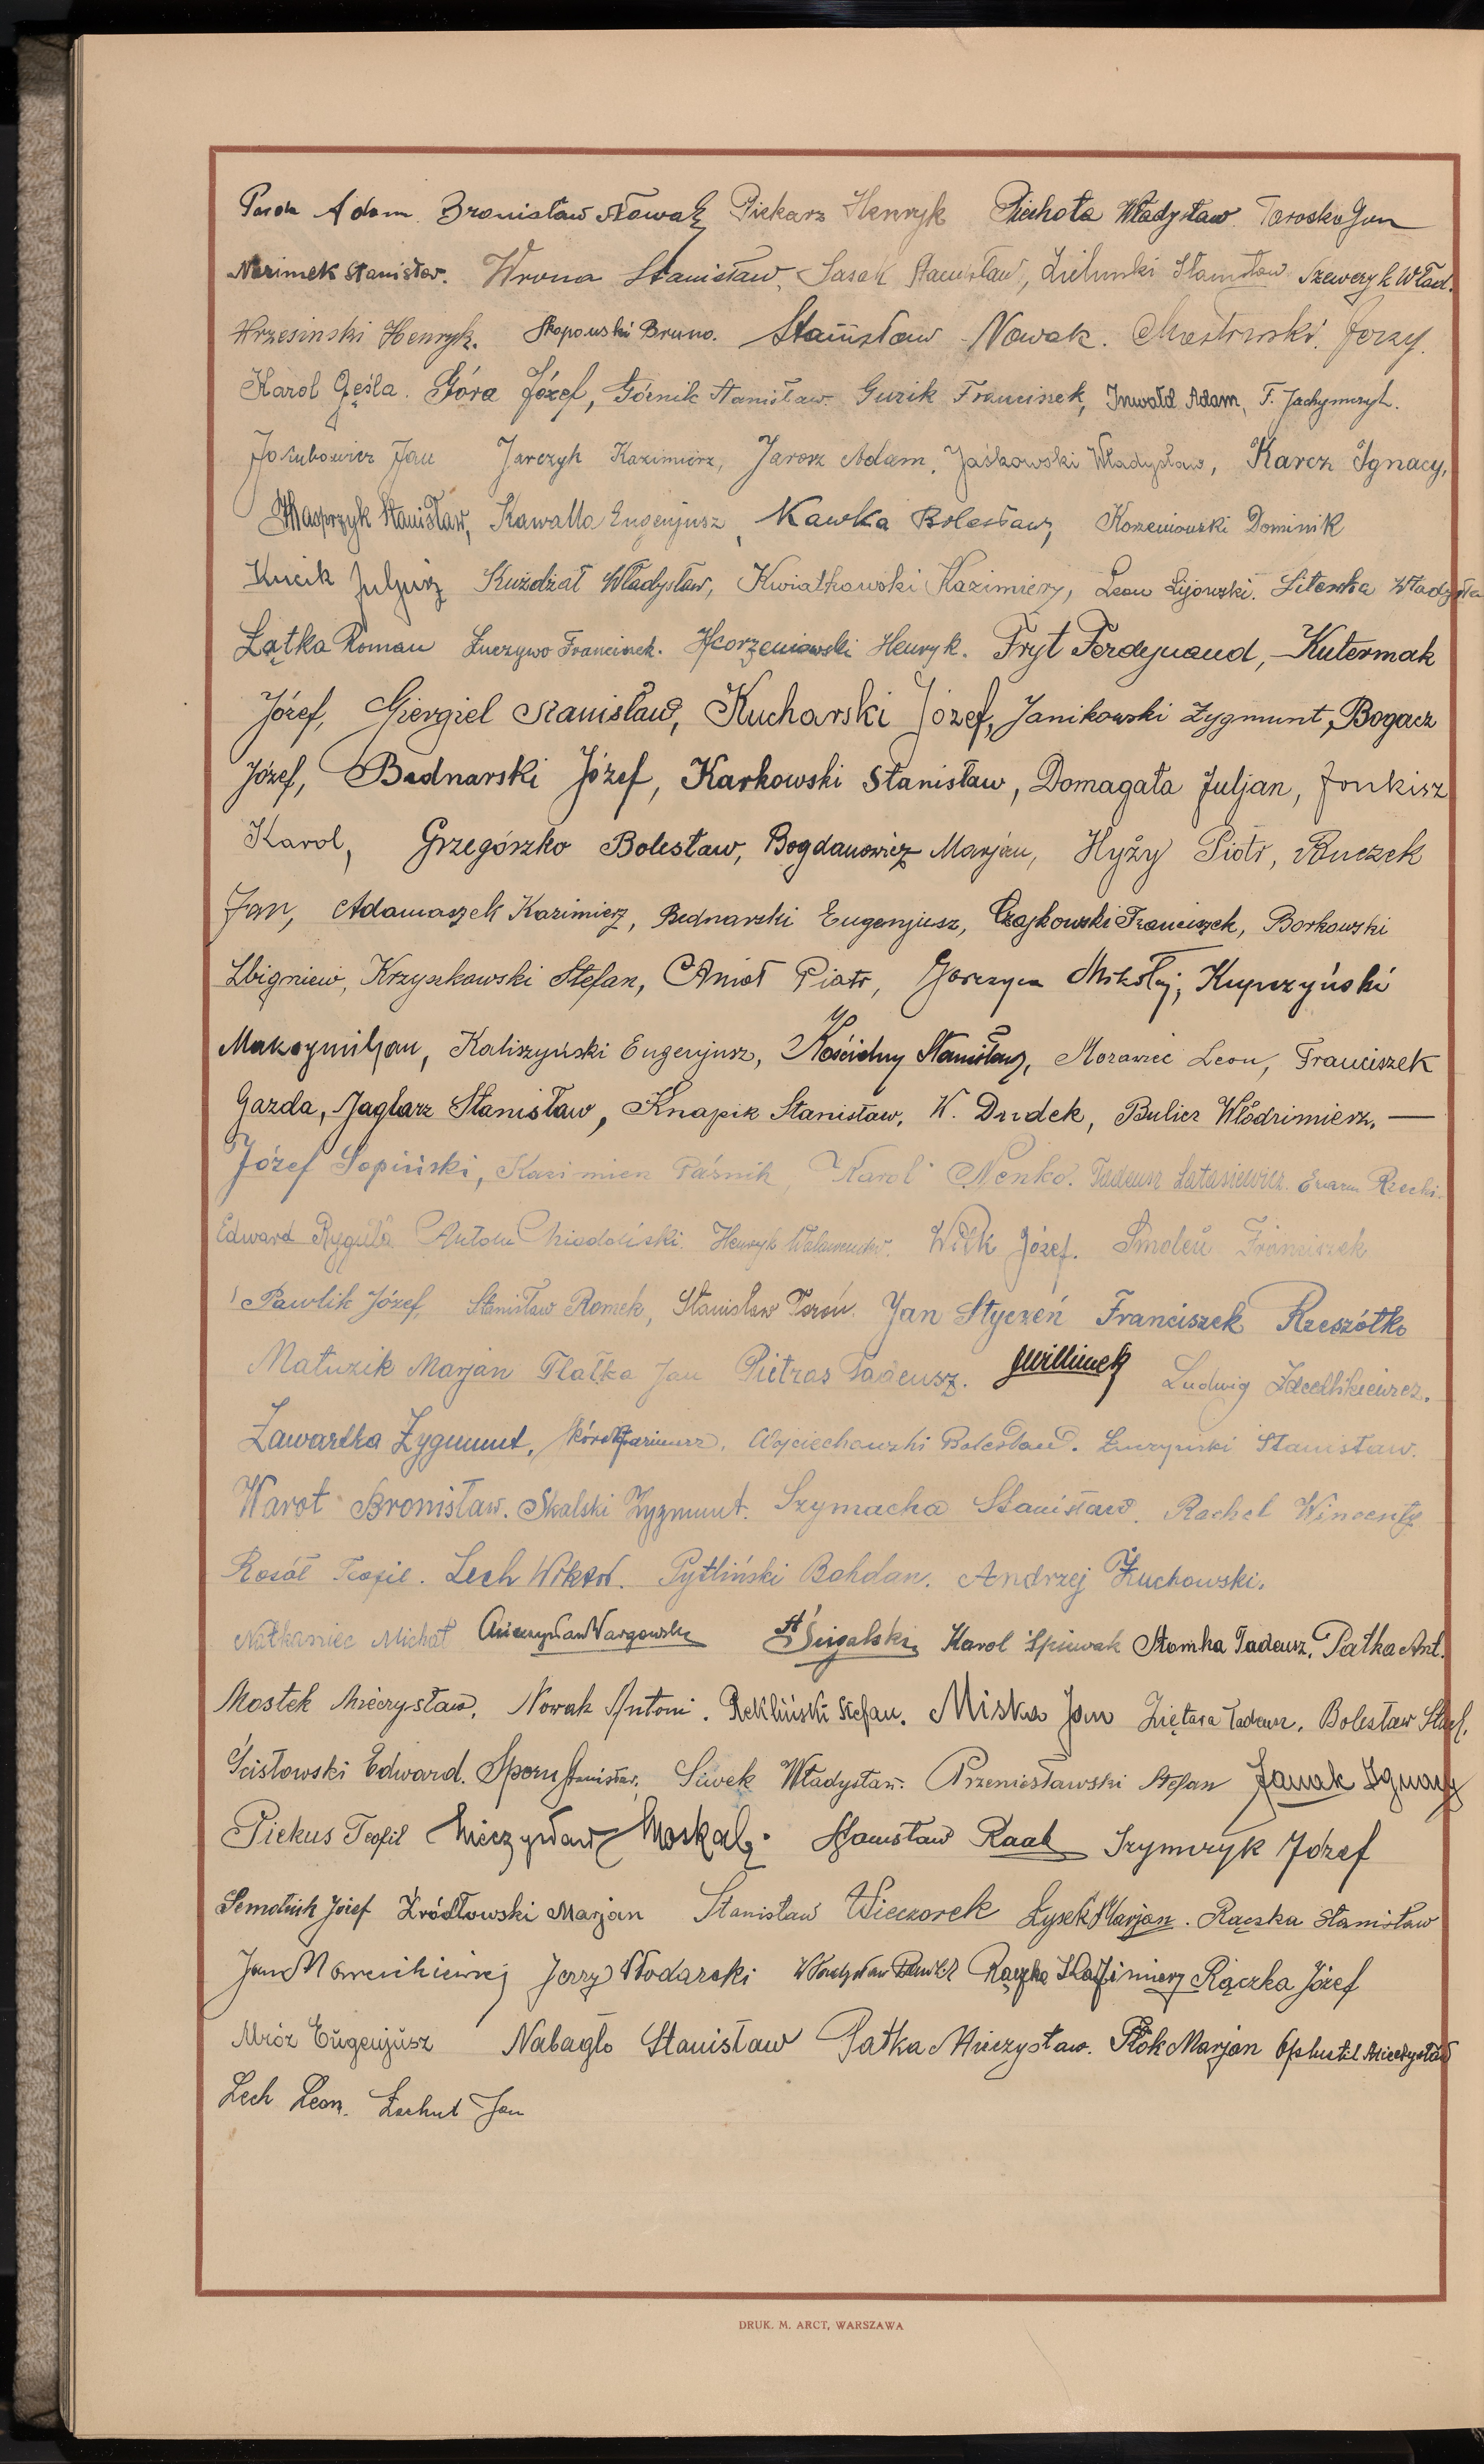 Adam Bronisław Nowak Piekarz Henryk Piechota Władysław. Taroska Jan
Stanisław. Wrona Stanisław, Sasak Stanisław, Zieliński Stanisław Szewczyk Wład.
Wrzesinski Henryk. Bruno. Stanisław Nowak. Jerzy.
Karol Gęśla. Góra Józef, Górnik Stanisław. Guzik Franciszek, Inwałd Adam, F. Jachymczyk.
Jakubowicz Jan Jarczyk Kazimierz, Jarosz Adam, Jaśkowski Władysław, Karcz Ignacy,
Kasprzyk Stanisław, Kawalla Eugenjusz, Kawka Bolesław, Korzeniowski Dominik
Kucik Juljusz Kuździał Władysław, Kwiatkowski Kazimierz, Leon Lijowski.
Łątka Roman Łuczywo Franciszek. Korzeniowski Henryk. Fryt Ferdynand, Kutermak
Józef, Giergiel Stanisław, Kucharski Józef, Janikowski Zygmunt, Bogacz
Józef, Bednarski Józef, Karkowski Stanisław, Domagała Juljan, Jonkisz
Karol, Grzegórzko Bolesław, Bogdanowicz Marjan, Hyży Piotr,
Jan, Adamaszek Kazimierz, Bednarski Eugenjusz, Czajkowski Franciszek, Borkowski
Zbigniew, Krzyszkowski Stefan, Anioł Piotr, Gorczyca Mikołaj, Kupczyński
Maksymiljan, Kaliszyński Eugenjusz, Kościelny Stanisław, Morawiec Leon, Franciszek
Gazda, Jaglarz Stanisław, Knapik Stanisław, W. Dudek, Bulicz Włodzimierz. —
Józef Sopiński, Kazimierz Paśnik, Karol Nenko. Tadeusz Łatasiewicz.
Edward Ryguła Antoni Henryk Wilk Józef. Smoleń Franciszek
Pawlik Józef, Stanisław Romek, Stanisław Poroń. Jan Styczeń Franciszek Rzeszótko
Matuzik Marjan Tlałka Jan Pietras Tadeusz. JWillimek Ludwig
Zawartka Zygmunt, Wojciechowski Bolesław. Łuczyński Stanisław.
Warot Bronisław. Skalski Zygmunt. Szymacha Stanisław. Rachel Wincenty
Rosół Teofil. Lech Wiktor. Pytliński Bohdan. Andrzej Żuchowski.
Natkaniec Michał St. Śmigalski Karol Śpiewak Słomka Tadeusz. Pałka Ant.
Mostek Mieczysław, Nowak Antoni. Rekliński Stefan. Miska Jan Ziętara Tadeusz. Bolesław
Ścisłowski Edward. Sporn Stanisław, Siwek Władysław. Przeniosławski Stefan Janak Ignacy
Piekus Teofil Mieczysław Moskal. Stanisław Raab Szymczyk Józef
Józef Źródłowski Marjan Stanisław Wieczorek Łysek Marjan. Rączka Stanisław
Jan Jerzy Włodarski Władysław Rączka Kazimierz Rączka Józef
Mróz Eugenjusz Nabagło Stanisław Pałka Mieczysław. Płok Marjan Mieczysław
Lech Leon. Łachut Jan
DRUK. M. ARCT, WARSZAWA